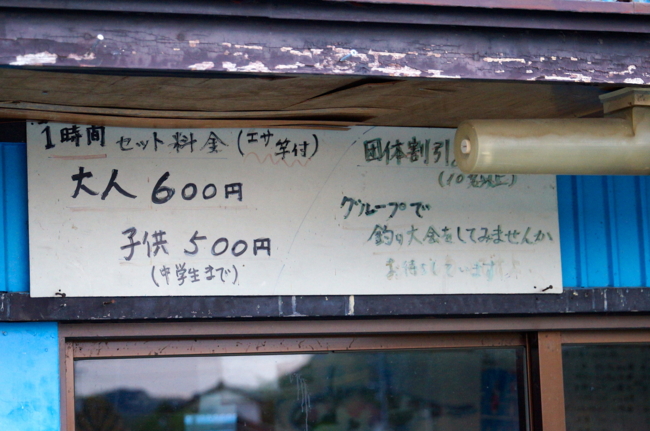 1時間 セット料金 (エサ 竿付)
大人 600円
子供 500円
(中学生まで)
団体割引
(10名以上)
グループで
釣り大会をしてみませんか
お待ちしています